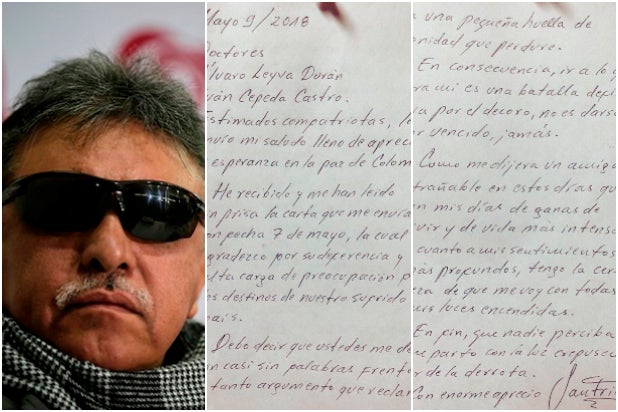 Mayo 9/2018
octores
lvaro Leyva Durán
ván Cepeda Castro.
Estimados compatriotas, le
nvío mi saludo lleno de apreci
esperanza en la paz de Colom
He recibido y me han leído
n prisa la carta que me envia
on fecha 7 de mayo, la cual
gradezco por su deferencia y
lta carga de preocupación p
os destinos de nuestro sufrido
aís.
Debo decir que ustedes me de
n casi sin palabras frente
tanto argumento que reclar
una pequeña huella de
nidad que perdure.
En consecuencia, ir a lo q
ra mi es una batalla defi
va por el decoro, no es darse
r vencido, jamás.
Como me dijera un amigo
trañable en estos días que
n mis días de ganas de
vir y de vida más intenso
cuanto a mis sentimientos
ás profundos, tengo la cer
za de que me voy con todas
is luces encendidas.
En fin, que nadie perciba
e parto con la luz crepuscu
r de la derrota.
Con enorme aprecio